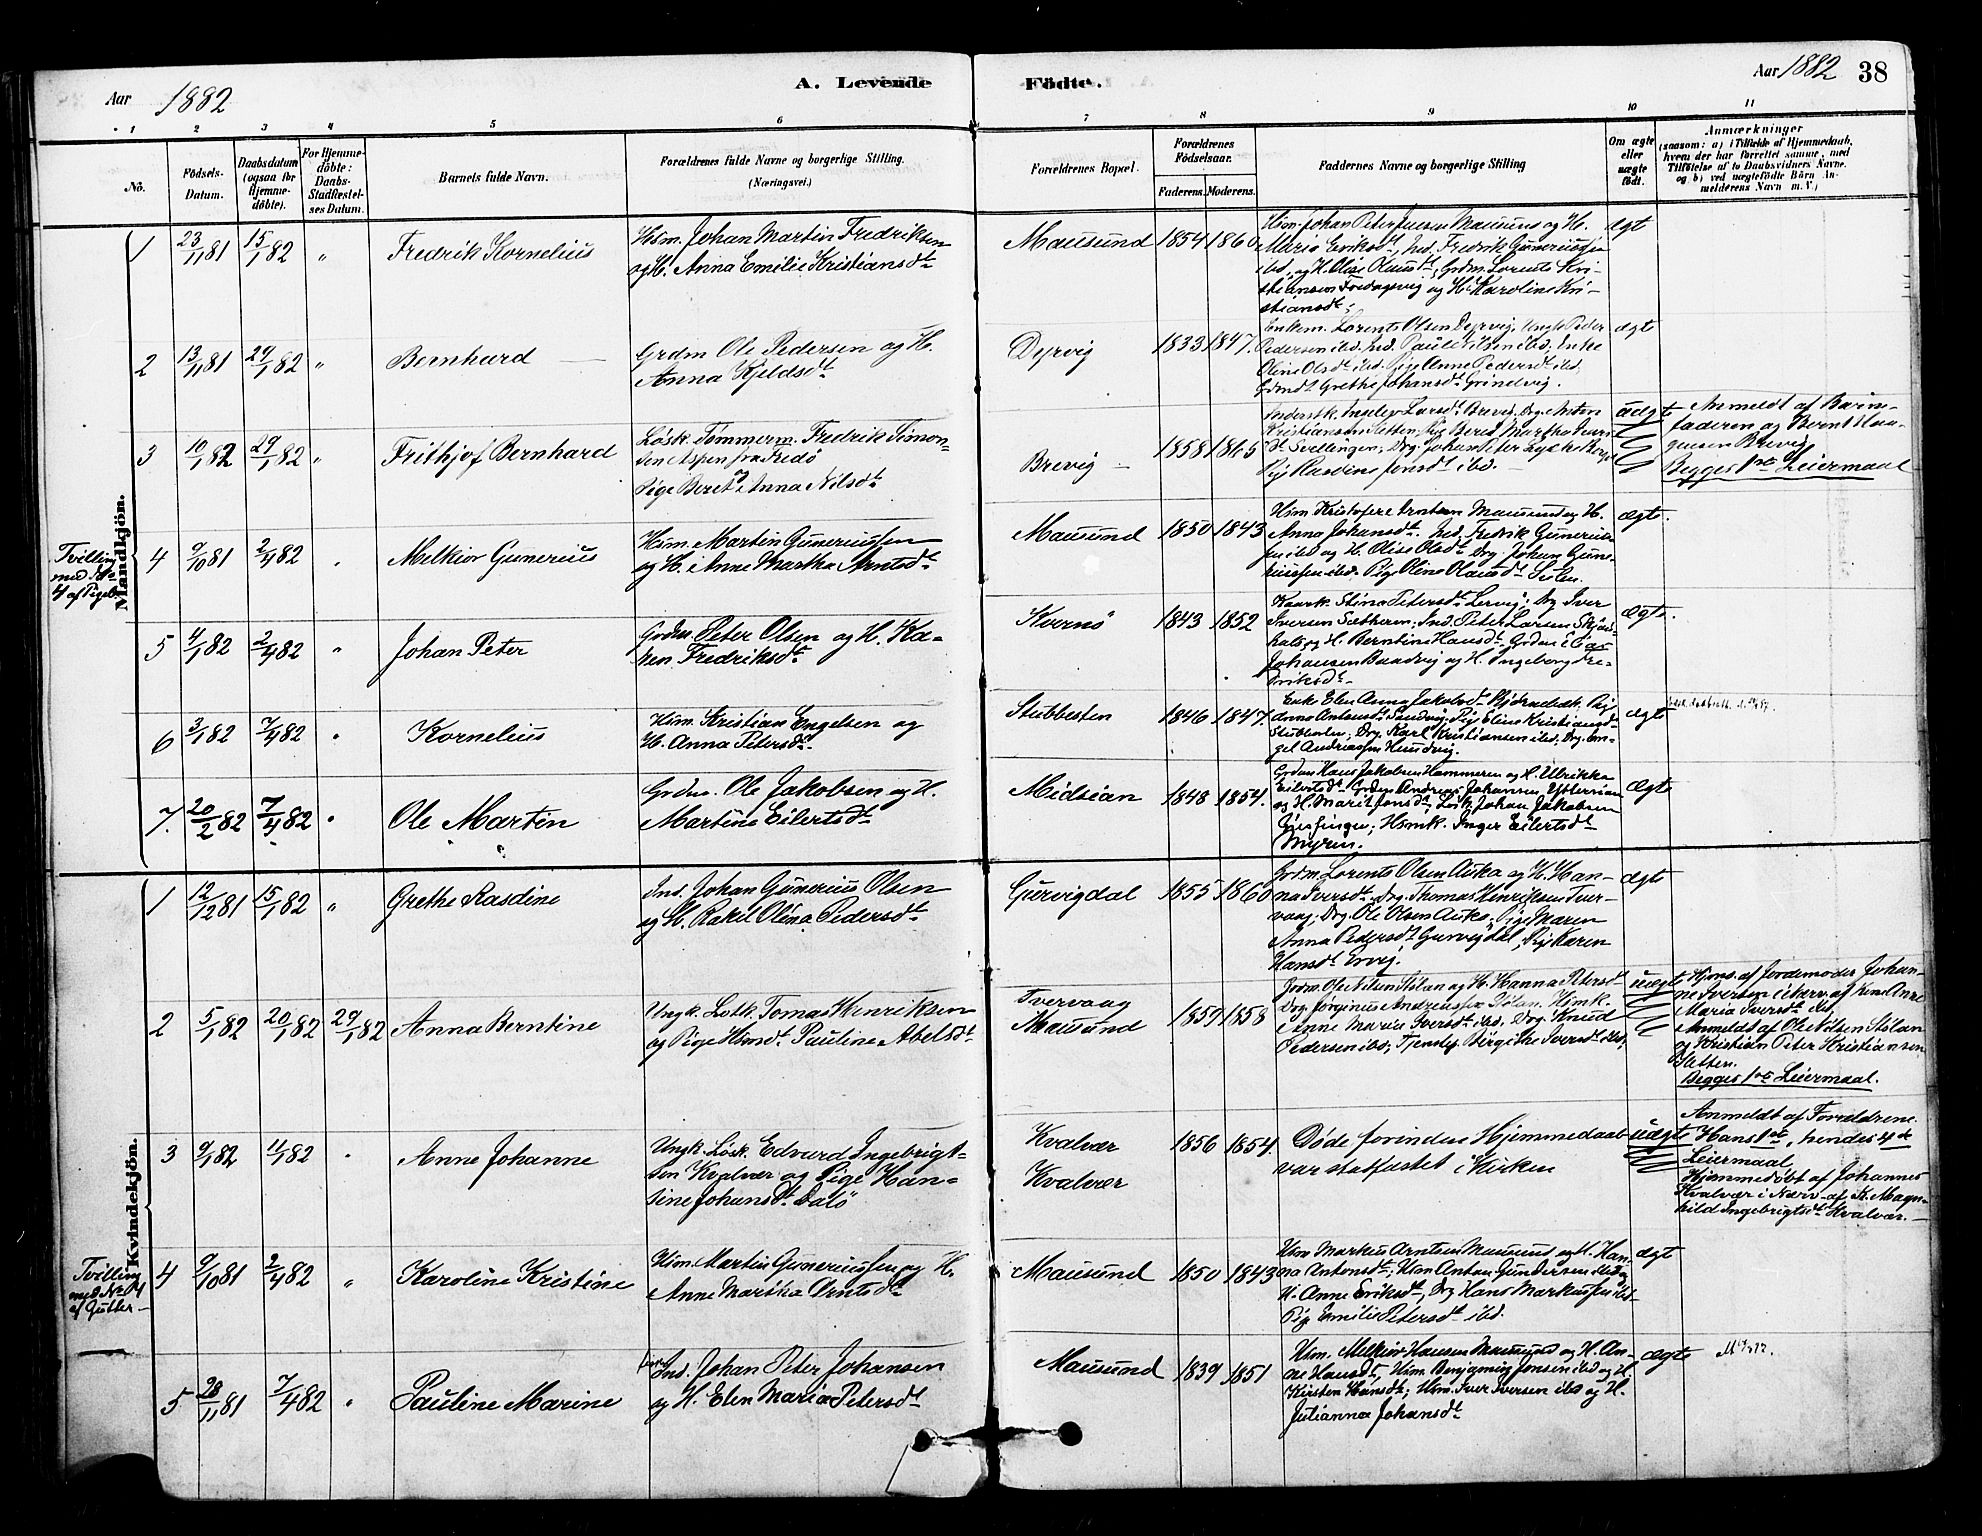 Aar 1882
A. Levende
Födte.
Aar 1882 38
1 2 3 4 5 6 7 8 9 10 11
No.
Födsels-
Datum.
Daabsdatum
(ogsaa för
Hjemme-
döbte).
For Hjemme-
döbte:
Daabs-
Stadfæstel-
ses Datum.
Barnets fulde Navn.
Forældrenes fulde Navne og borgerlige Stilling.
(Næringsvei.)
Forældrenes Bopæl.
Forældrenes
Födselsaar.
Faderens. Moderens.
Faddernes Navne og borgerlige Stilling
Om ægte
eller
uægte
födt.
Anmærkninger
(saasom: a) i Tilfælde af Hjemmedaab,
hvem der har forrettet samme, med
Tilföielse af to Daabsvidners Navne.
og b) ved uægtefödte Börn An-
melderens Navn m. V.)
Mandkjön.
1 23/11 81 15/1 82 „ Fredrik Kornelius
Hsm. Johan Martin Fredriksen
og H. Anna Emilie Kristiansdt
Mausund 1854 1860
Hsm. Johan Peter Mausund og H.
Maria Eriksdt, Ind. Fredrik Guneriussen
ibd. og H. Olise Olausdt, Grdm. Lorents Kri-
stiansen Fredagsvig og H. Karoline Kri-
stiansdt;
ægt
2 13/11 81 29/1 82 „ Bernhard
Grdm Ole Pedersen og H.
Anna Kjeldsdt
Dyrvig 1833 1847.
Enkem. Lorents Olsen Dyrvig, Ungk Peder
Pedersen ibd. Ind. Paul ibd. Enke
Oline Olsdt ibd. Pige Anne Pedersdt ibd.
Grdmdt Grethe Johansdt Grindvig.
ægt
3 10/1 82 29/1 82 „ Frithjof Bernhard
Løsk. Tømmerm. Fredrik Simon-
sen Aspen fra Fredö
Pige Beret Anna Nilsdt
Brevig 1858 1865
Inderstk. Ingeleiv Larsdt Brevig, Drg. Anton
Kristiansen Sletten, Pig Beret Martha Ivers-
dt Svellingen, Drg. Johan Peter
Pig Rasdine Jonsdt ibd.
uægt
Anmeldt af Barne-
faderen og Bernt Haa-
gensen Brevig
Begges 1ste Leiermaal
Tvilling
med No
4 af Piger
4 9/10 81 2/4 82 „ Melkior Gunerius
Hsm. Martin Guneriussen
og H. Anne Martha Arntsdt
Mausund 1850 1843
Hsm Kristofer Arntsen Mausund og H.
Anna Johansdt. Ind. Fredrik Guneriu-
sen ibd og H. Olise Olsdt Drg Johan Gune-
riussen ibd. Pige Oline Olausdt Sulen.
ægte.
5 4/1 82 2/4 82 „ Johan Peter
Grdm. Peter Olsen og H. Ka-
ren Fredriksdt
Kvernö 1843 1852
Kaark. Stina Petersdt Lervig; Drg Iver
Iversen Sætheren; Ind. Peter Larsen Skjærd-
hals og H. Berntine Hansdt, Grdm Elias
Johansen Bundvig og H. Ingeborg Fre-
driksdt
ægte.
6 3/1 82 7/4 82 „ Kornelius
Hsm. Kristian Engelsen og
H. Anna Petersdt
Stubbesten 1846 1847.
Enke Elen Anna Jakobsdt Pig
Anne Antonsdt Sandvig, Pig Eline Kristiansdt
Drg. Karl Kristiansen ibd. Drg. En-
gel Andreassen Hundvig.
ægt
7. 20/2 82 7/4 82 „ Ole Martin
Grdm. Ole Jakobsen og H.
Martine Eilertsdt
Midtsian 1848 1854.
Grdm Hans Jakobsen Hammeren og H. Ulrikka
Eilertsdt. Grdm Andreas Johansen Ytterrian
og H. Marit Jonsdt, Løsk. Johan Jakobsen
Gjesfingen; Hsmk. Inger Eilertsdt
Myren.
ægte
Kvindekjön.
1 12/12 81 15/1 82 „ Grethe Rasdine
Ind. Johan Gunerius Olsen
og H. Rakel Olina Pedersdt
Gurvigdal 1855 1860
Grdm. Lorents Olsen Auka og H. Han-
na Iversdt, Drg. Thomas Henriksen Tver-
vaag, Drg Ole Olsen Auka, Pige Maren
Anna Pedersdt Gurvigdal, Pig Karen
Hansdt Ervig.
ægt
2 5/1 82 20/1 82 29/1 82 Anna Berntine
Ungk. Løsk. Tomas Henriksen
og Pige Hsmdt Pauline Abelsdt
Tvervaag
Mausund 1859 1858
Grdm. Ole Nilsen Stölan og H. Hanna Petersdt
Drg Jørginus Andreassen Stölan. Hsmk.
Anne Maria Iversdt ibd, Drg. Knud
Pedersen ibd; Tjenstp. Birgithe Iversdt ibd;
uægt
Hjms. af Jordemoder Johan-
ne Iversen i Nærv. af Kone Anne
Maria Iversdt ibd,
Anmeldt af Ole Nilsen Stölan
og Kristian Peter Kristiansen
Sletten.
Begges 1ste Leiermaal.
3 9/1 82 11/1 82 „ Anne Johanne
Ungk. Løsk. Edvard Ingebrigt-
sen Kvalvær og Pige Han-
sine Johansdt Dalö
Kvalvær
Kvalvær 1856 1854.
Døde forinden Hjemmedaab
var stadfæstet i Kirken
uægte
Anmeldt af Forældrene.
Hans 1ste, hendes 4de
Leiermaal
Hjemmedöbt af Johannes
Kvalvær i Nærv. af K. Magn-
hild Ingebrigtsdt Kvalvær.
Tvilling
med No 4
af Gutter
4 9/10 81 2/4 82 „ Karoline Kristine
Hsm. Martin Guneriussen og H.
Anne Martha Arntsdt
Mausund 1850 1843
Hsm Markus Arntsen Mausund og H. Han-
na Antonsdt; Hsm Anton Gundersen ibd og
H. Anne Eriksdt, Drg Hans Markussen ibd-
Pig Emilie Petersdt ibd.
ægt
5 28/11 81 7/4 82 „ Pauline Marine
Ind. Johan Peter Johansen
og H. Elen Maria Petersdt
Mausund 1839 1851
Hsm. Melkior Hansen Mausund og H. An-
ne Hansdt, Hsm Benjamin Jonsen ibd og H.
Kirsten Hansdt; Hsm. Iver Iversen ibd og H.
Julianna Johansdt
ægte